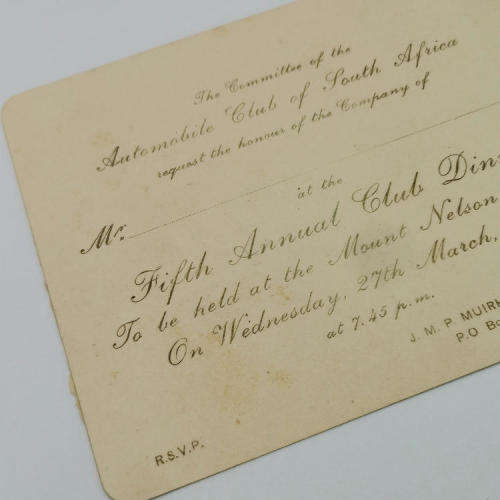 The Committee of the
Automobile Club of South Africa
request the honour of the Company of
Mr.
at the
Fifth Annual Club Din
To be held at the Mount Nelson
On Wednesday, 27th March,
at 7.45 p.m.
J. M. P. MUIRE
P.O. BO
R.S.V.P.